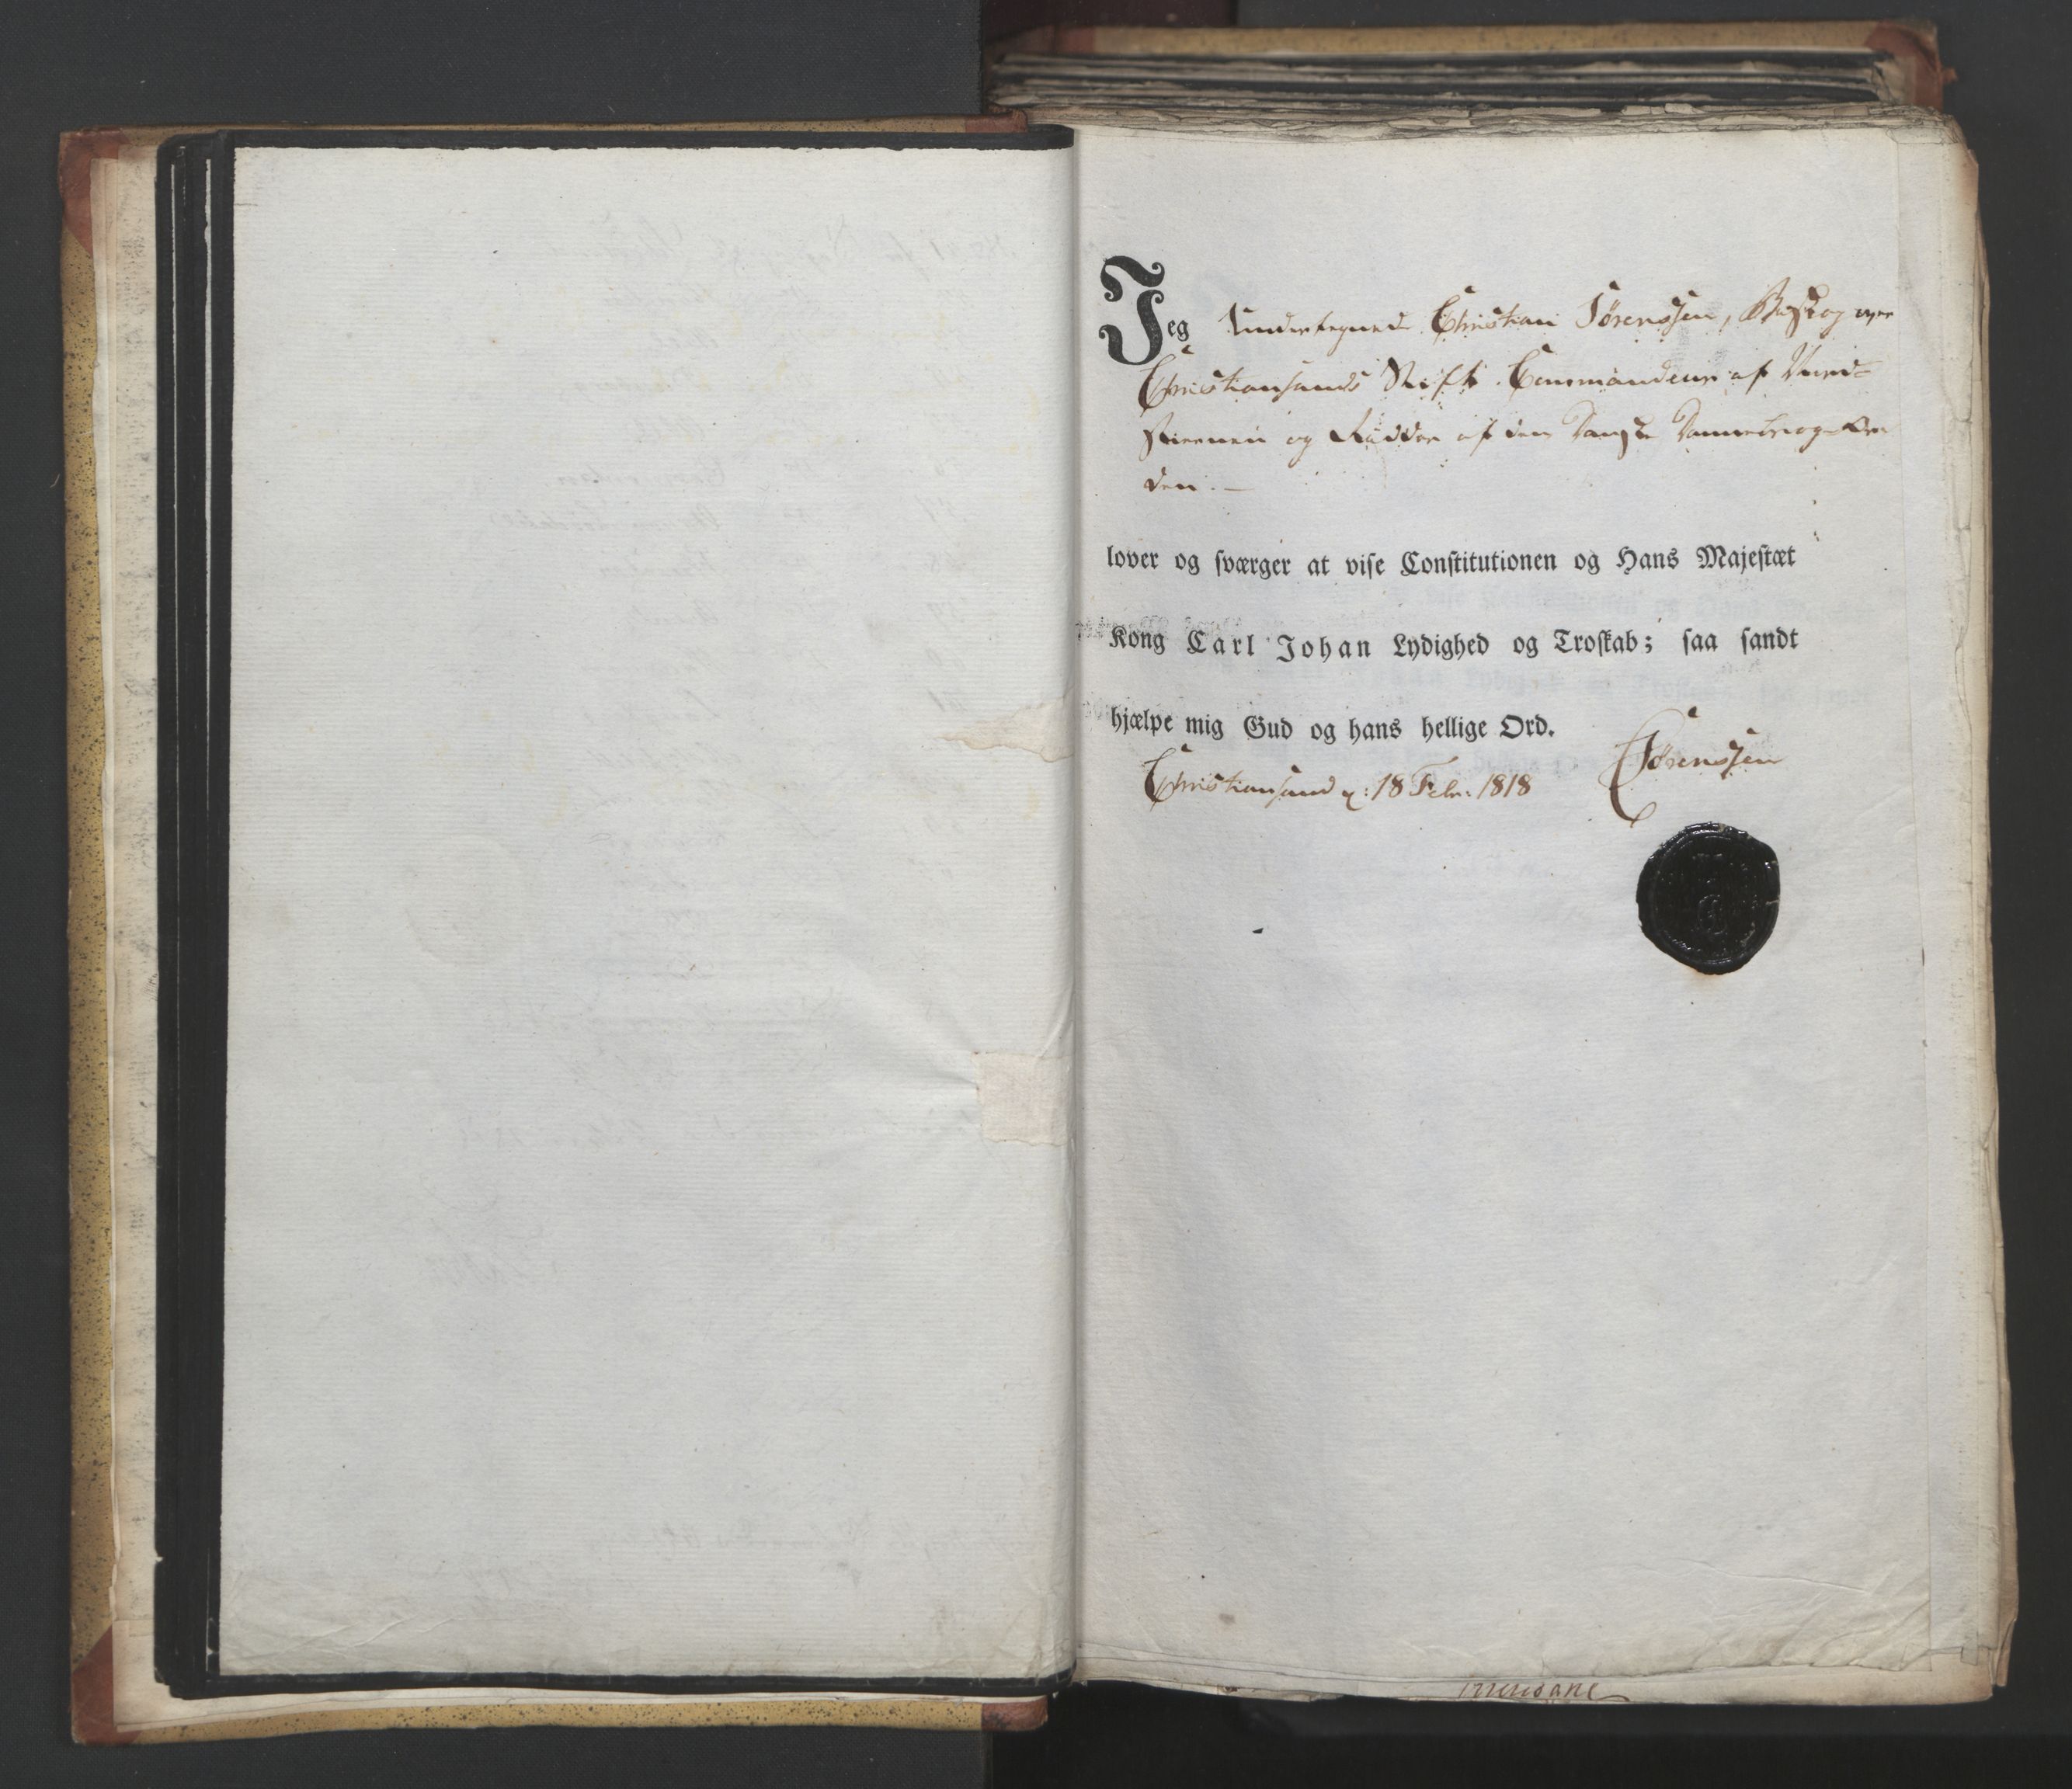 Jeg Undertegnede Christian Sørenssen, Biskop over
Christiansands Stift. Commandeur af Nord-
stiernen og Ridder af den Danske Dannebrog-Or-
den. —
lover og sværger at vise Constitutionen og Hans Majestæt
Kong Carl Johan Lydighed og Troskab; saa sandt
hjælpe mig Gud og hans hellige Ord.
Christiansand d: 18 Febr: 1818
CSørenssen